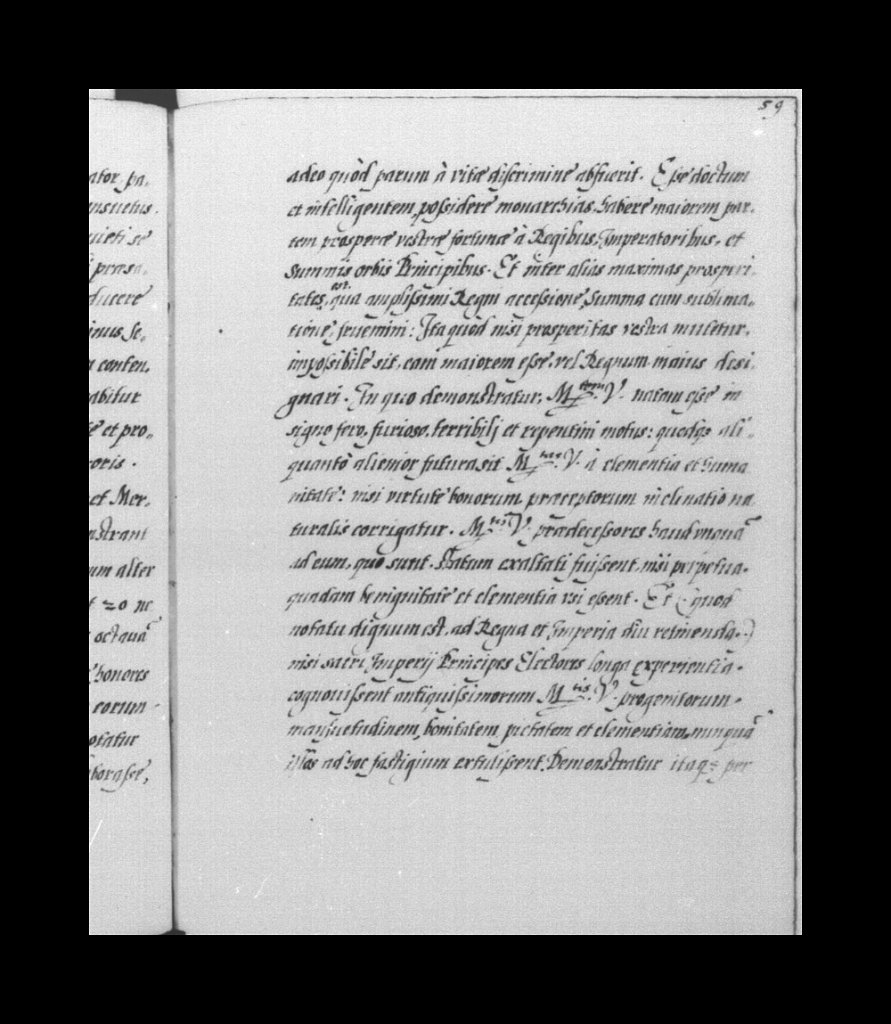 59
ator pa,
nsuetus.
uieti se
præsa,
ducere
inus se,
conten,
abitur
et pro,
toris.
et Mer,
nstrant
um alter
20 ne
octauã
honores
eorum
otatur
borasse,
adeo quòd parum à vitæ discrimine abfuerit. Esse doctum
et intelligentem, possidere monarchias, habere maiorem par,
tem prosperæ vestræ fortunæ à Regibus, Imperatoribus, et
Summis orbis Principibus. Et inter alias maximas prosperi,
tates, est, qua amplissimi Regni accessione, Summa cum sublima,
tione, fruemini: Ita quod nisi prosperitas vestra mutetur,
impossibile sit, eam maiorem esse, vel Regnum maius desi,
gnari. In quo demonstratur, M.tem V. natam esse in
signo fero, furioso, terribili et repentini motus: quodq3 ali,
quantò alienior futura sit M.tas V. à clementia et huma
nitate: nisi virtute bonorum præceptorum inclinatio na
turalis corrigatur. M.tis V. prædecessores haud vnquã
ad eum, quo sunt, statum exaltati fuissent, nisi perpetua,
quadam benignitate et clementia vsi essent. Et (quod
notatu dignum est, ad Regna et Imperia diu retinenda.)
nisi sacri Imperij Principes Electores longa experientia,
cognouissent antiquissimorum M.tis V. progenitorum,
mansuetudinem, bonitatem, pietatem et clementiam, nunquã
illos ad hoc fastigium extulissent. Demonstratur itaq3 per